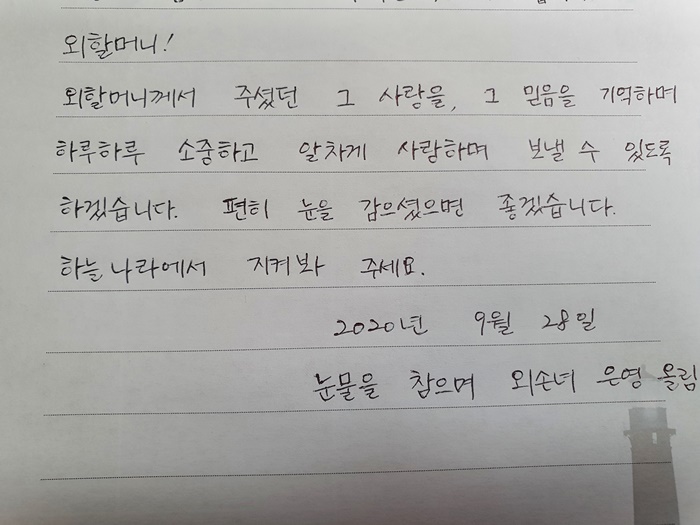 외할머니!
외할머니께서 주셨던 그 사랑을, 그 믿음을 기억하며
하루하루 소중하고 알차게 사랑하며 보낼 수 있도록
하겠습니다. 편히 눈을 감으셨으면 좋겠습니다.
하늘나라에서 지켜봐 주세요.
2020년 9월 28일
눈물을 참으며 외손녀 은영 올림